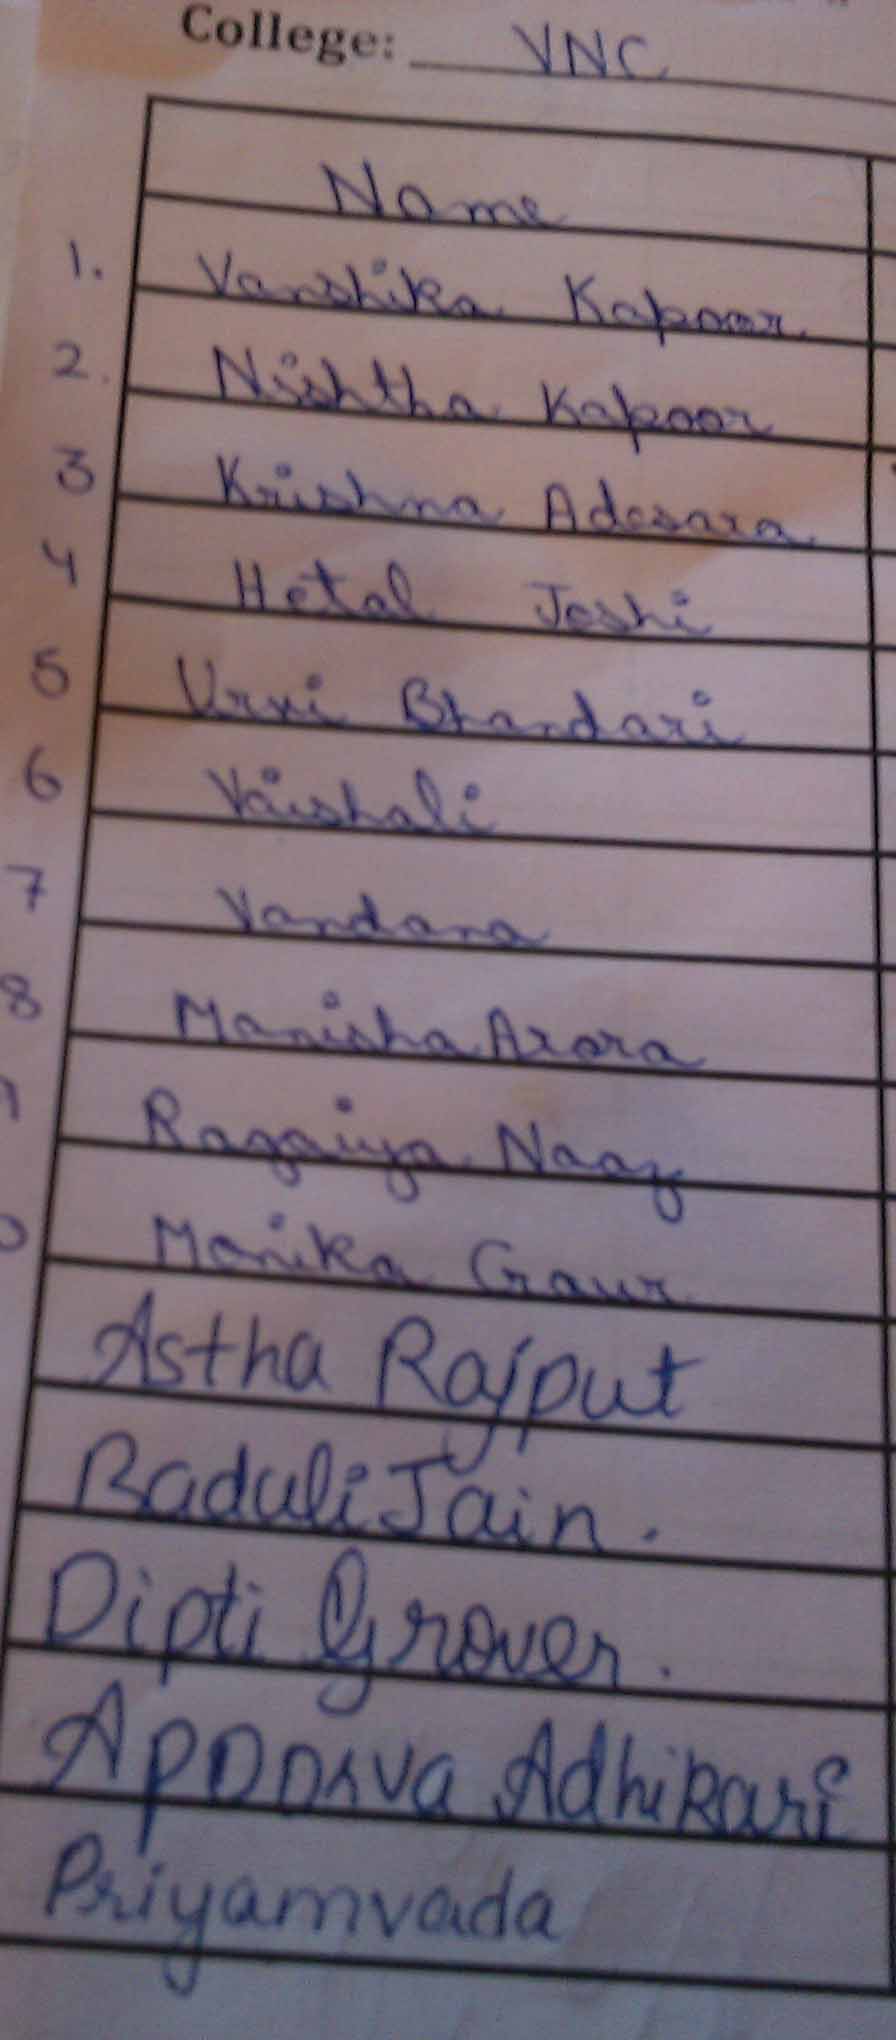 College: VNC
Name
1. Vanshika Kapoor
2. Nishtha Kapoor
3 Krishna Adesara
4 Hetal Joshi
5 Urvi Bhandari
6 Vaishali
7 Vandana
8 Manisha Arora
Raqaiya Naaz
Monika Gaur
Astha Rajput
Baduli Jain.
Dipti Grover.
Apoorva Adhikari
Priyamvada